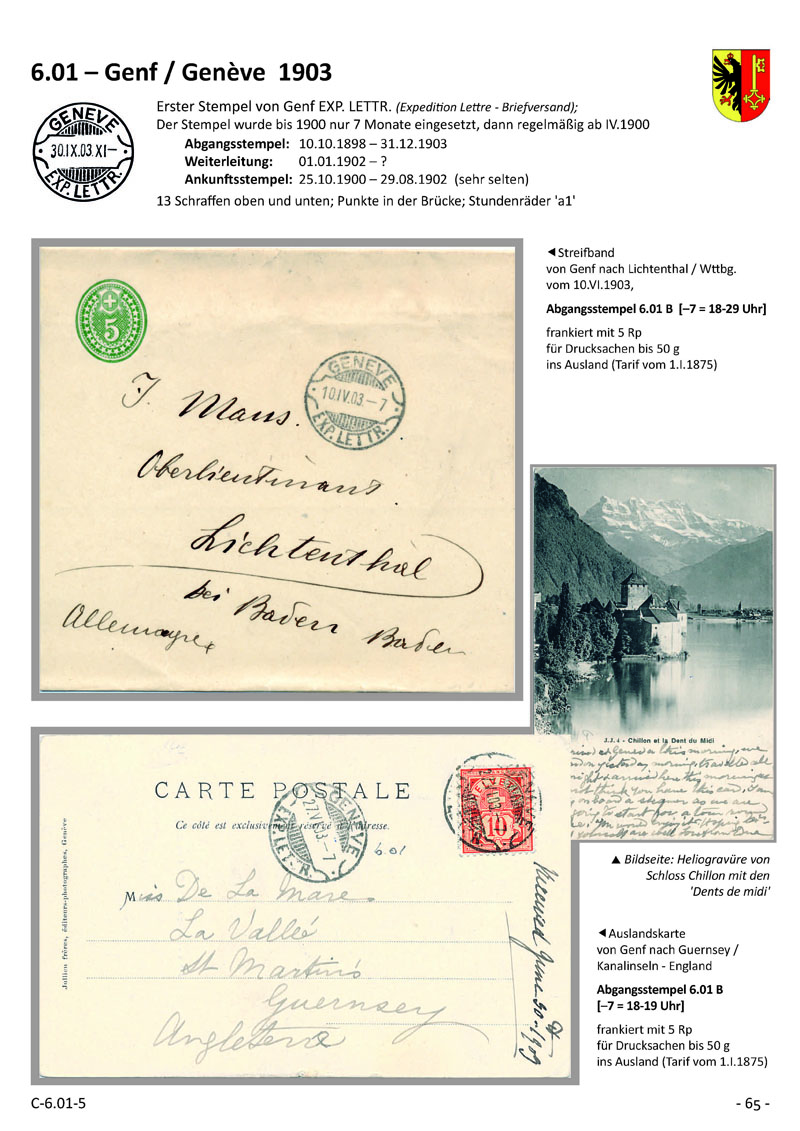 6.01 – Genf / Genève 1903
Erster Stempel von Genf EXP. LETTR. (Expedition Lettre - Briefversand);
Der Stempel wurde bis 1900 nur 7 Monate eingesetzt, dann regelmäßig ab IV.1900
Abgangsstempel: 10.10.1898 – 31.12.1903
Weiterleitung: 01.01.1902 – ?
Ankunftsstempel: 25.10.1900 – 29.08.1902 (sehr selten)
13 Schraffen oben und unten; Punkte in der Brücke; Stundenräder 'a1'
GENEVE
30.IX.03.XI–
EXP. LETTR.
◀ Streifband
von Genf nach Lichtenthal / Wttbg.
vom 10.VI.1903,
Abgangsstempel 6.01 B [–7 = 18-29 Uhr]
frankiert mit 5 Rp
für Drucksachen bis 50 g
ins Ausland (Tarif vom 1.I.1875)
5
GENEVE
10.IV.03.–7
EXP. LETTR.
J. Maus.
Oberlieutinant
Lichtenthal
bei Baden Baden
Allemagne
J.J. 4 - Chillon et la Dent du Midi
▲ Bildseite: Heliogravüre von
Schloss Chillon mit den
'Dents de midi'
CARTE POSTALE
Ce côté est exclusivement réservé à l'adresse.
GENEVE
EXP. LETTR.
HELVETIA
10
6.01
Miss De La Mare
La Vallée
St Martin's
Guernsey
Angleterre
Received June 30-1903
Jullien frères, éditeurs-photographes, Genève
◀ Auslandskarte
von Genf nach Guernsey /
Kanalinseln - England
Abgangsstempel 6.01 B
[–7 = 18-19 Uhr]
frankiert mit 5 Rp
für Drucksachen bis 50 g
ins Ausland (Tarif vom 1.I.1875)
C-6.01-5
- 65 -